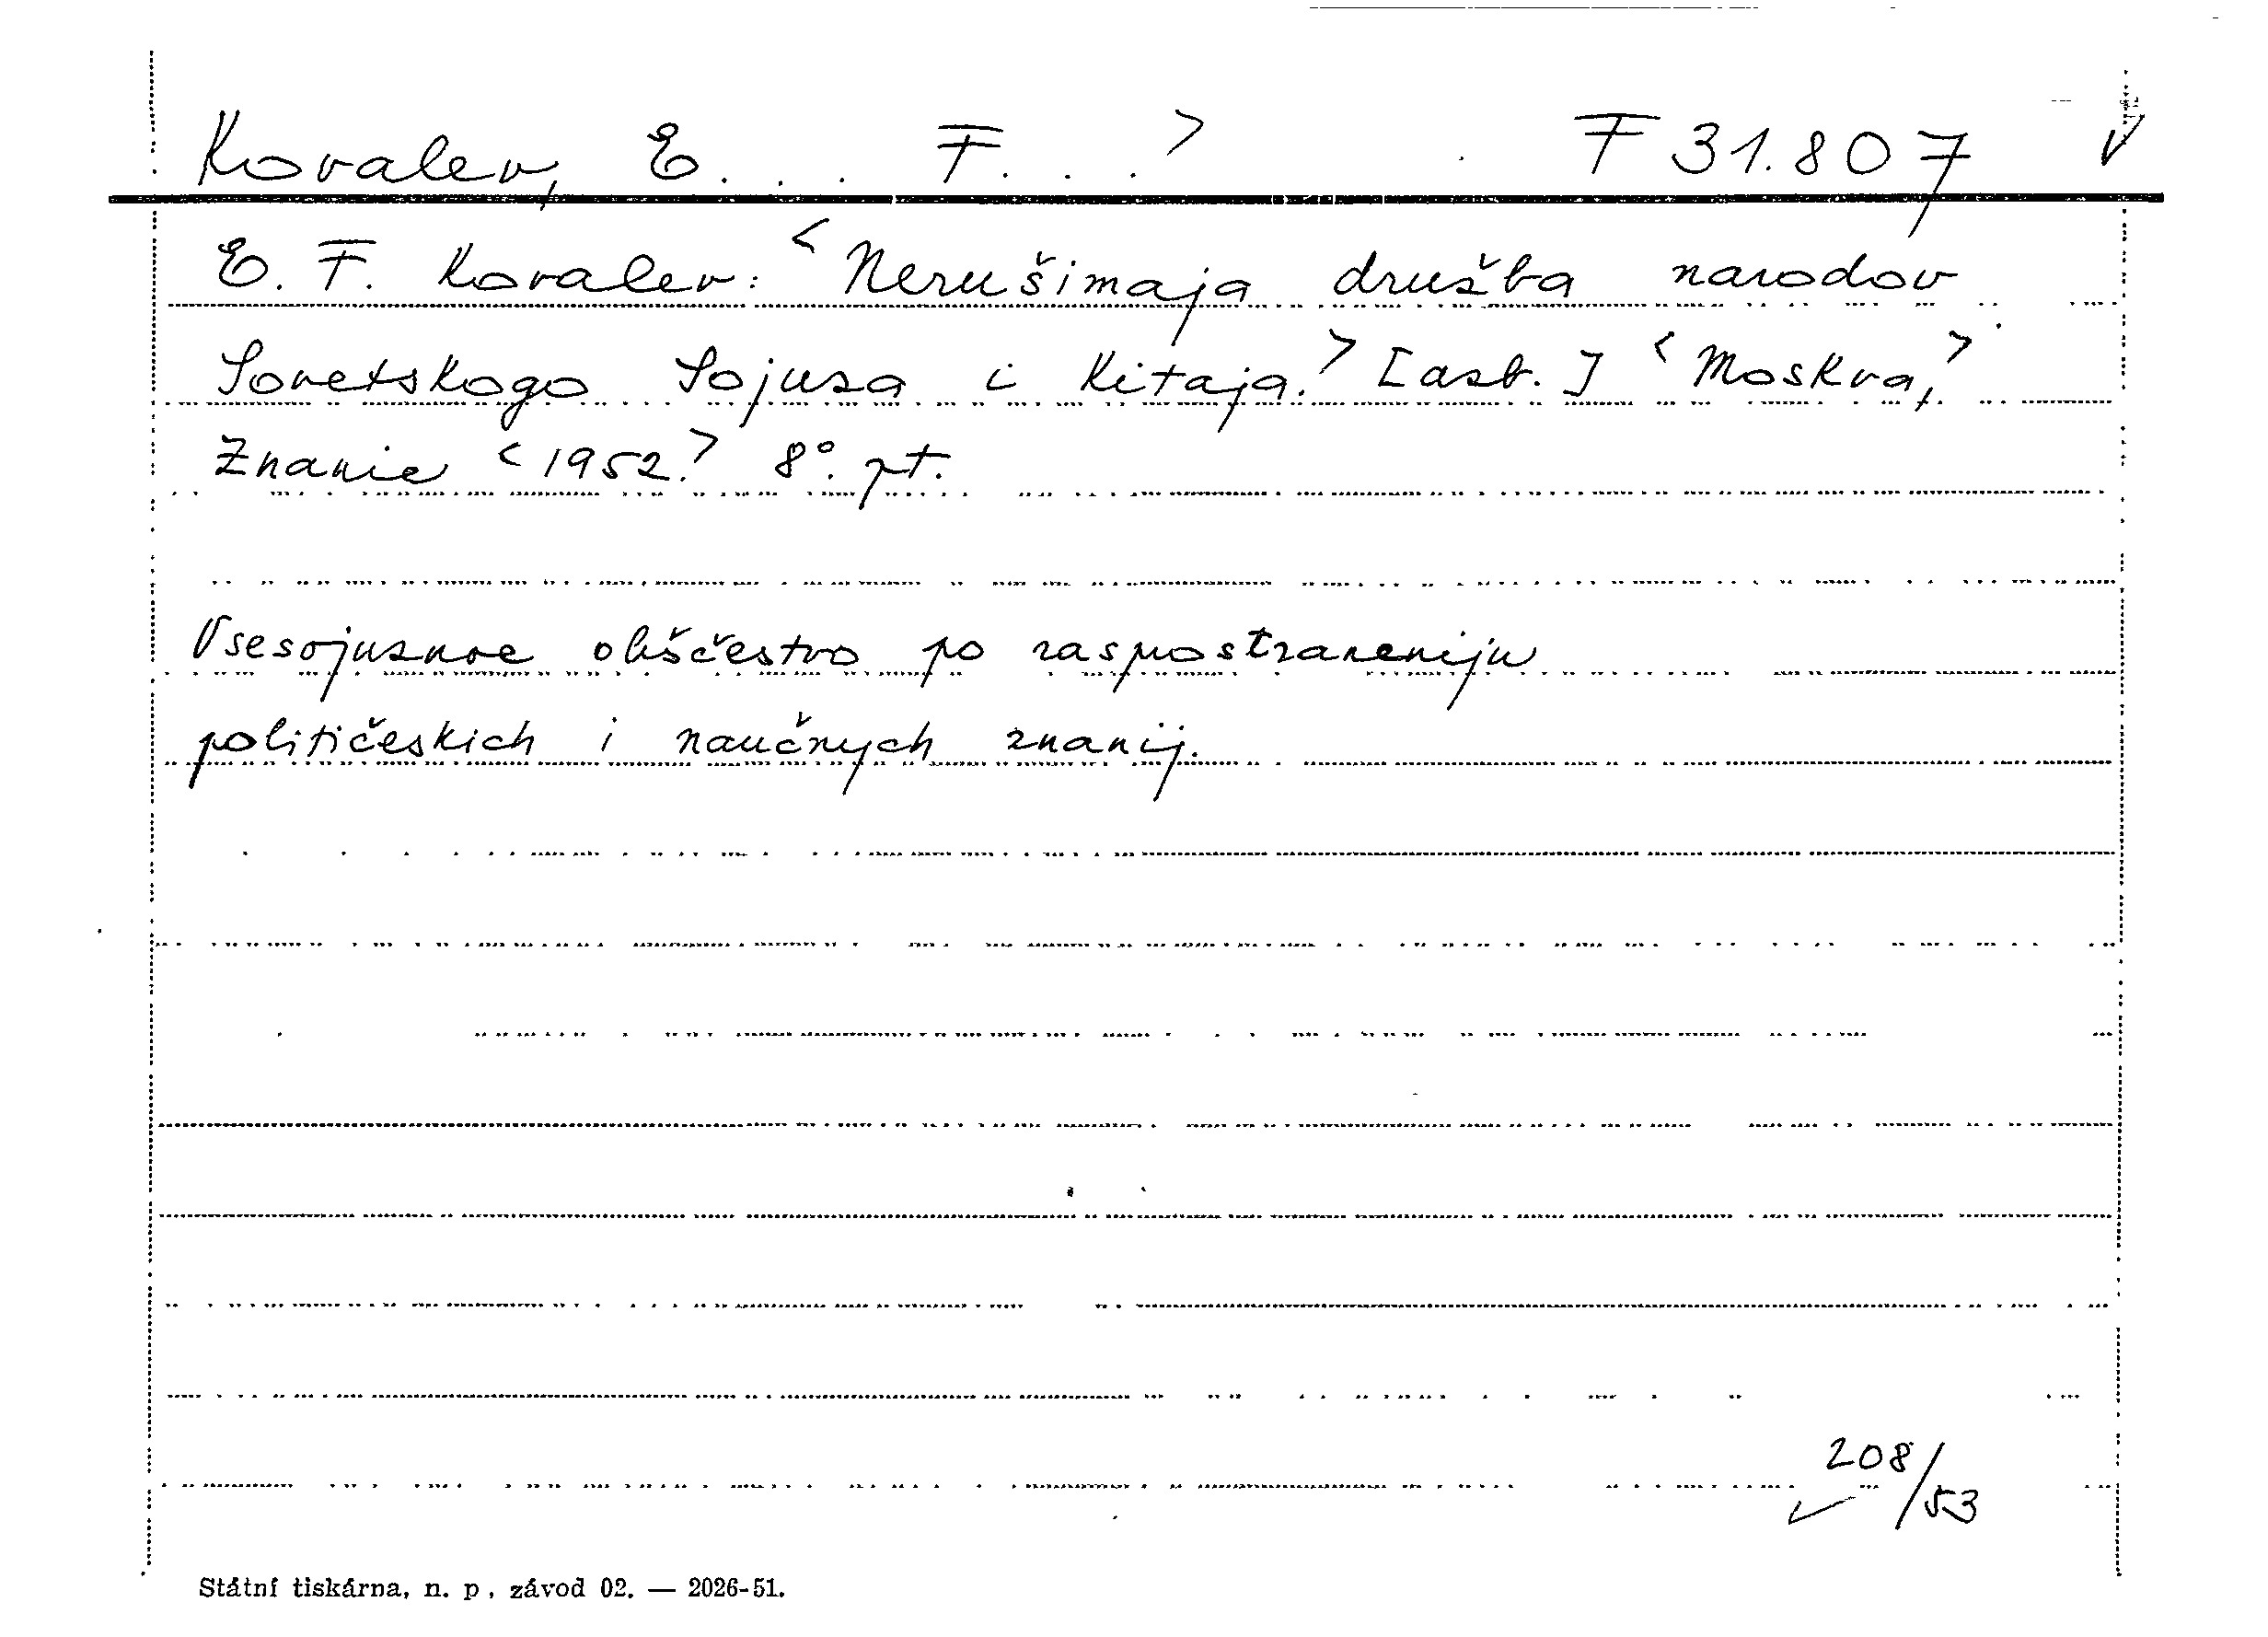 Kovalev, E. . . F. . . > F 31.807 √
E. F. Kovalev: <Nerušimaja družba narodov
Sovetskogo Sojuza i Kitaja.> [azb.] <Moskva,>
Znanie <1952.> 8°. pt.
Vsesojuznoe obščestvo po rasprostraneniju
političeskich i naučnych znanij.
208/53
Státní tiskárna, n. p., závod 02. — 2026-51.